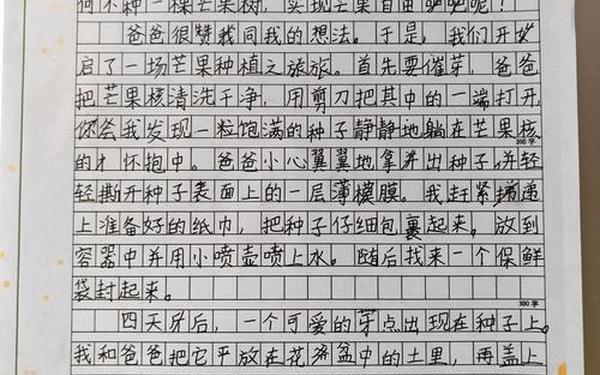 何不种一棵芒果树，实现芒果自由呢！
爸爸很赞我同我的想法。于是，我们开
启了一场芒果种植之旅旅。首先要催芽，爸爸
把芒果核清洗干净，用剪刀把其中的一端打开，
你会我发现一粒饱满的种子静静地躺在芒果核
300字
的才怀抱中。爸爸小心翼翼地拿并出种子，并轻
轻撕开种子表面上的一层薄模膜。我赶紧递
上准备好的纸巾，把种子仔细包裹起来。放到
容器中并用小喷壶喷上水。随后找来一个保鲜
袋封起来。
300字
四天牙后，一个可爱的牙点出现在种子上。
我和爸爸把它平放在花盆中的土里，再盖上